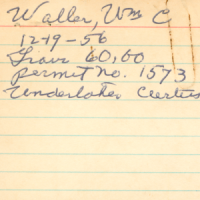 Waller, Wm C
12-19-56
Grave 60,00
permit No. 1573
Undertaker Curtis